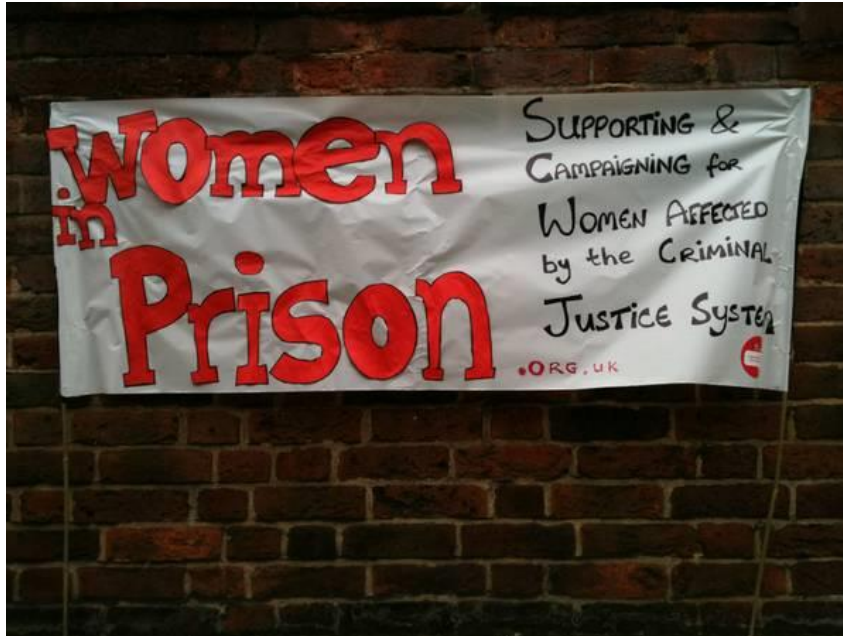 Women
in
Prison
.ORG.uk
SUPPORTING &
CAMPAIGNING for
WOMEN AFFECTED
by the CRIMINAL
JUSTICE SYSTEM